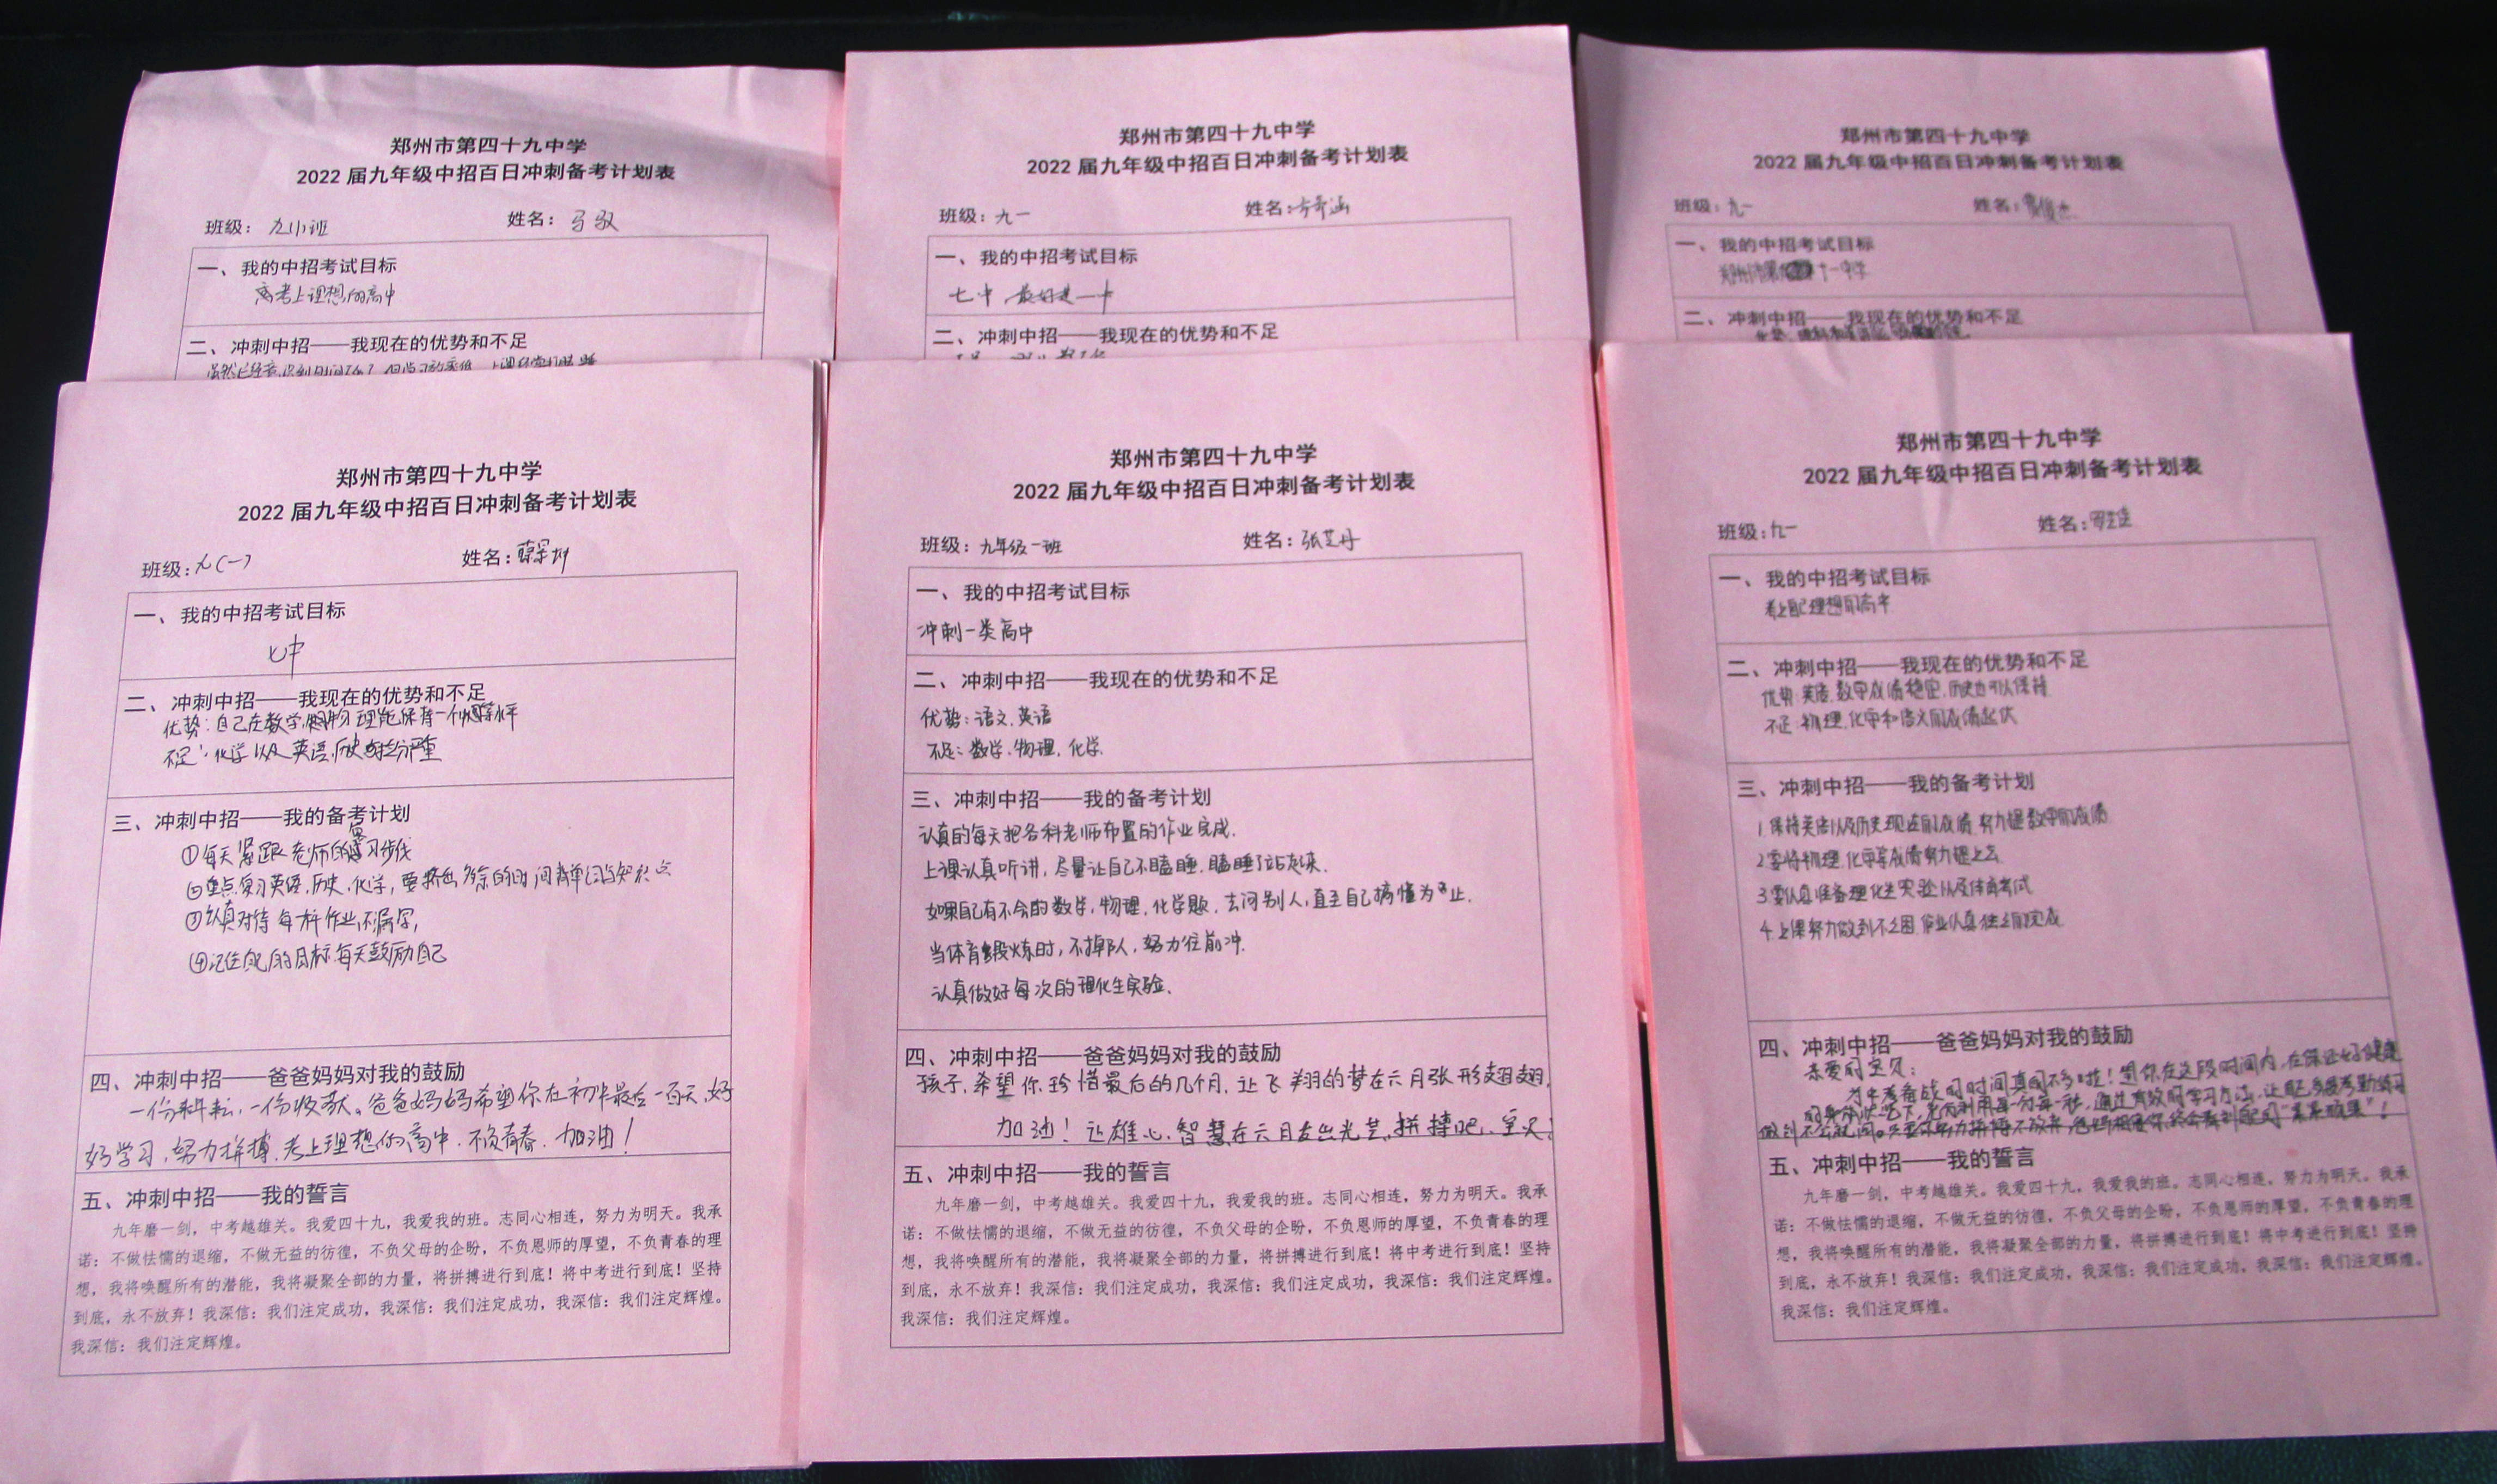 郑州市第四十九中学
2022 届九年级中招百日冲刺备考计划表
班级： 九(1)班 姓名：
一、我的中招考试目标
考上理想的高中
二、冲刺中招——我现在的优势和不足
郑州市第四十九中学
2022 届九年级中招百日冲刺备考计划表
班级：九一 姓名：方奇涵
一、我的中招考试目标
七中 最好是一中
二、冲刺中招——我现在的优势和不足
郑州市第四十九中学
2022 届九年级中招百日冲刺备考计划表
班级：九一 姓名：
一、我的中招考试目标
十一中学
二、冲刺中招——我现在的优势和不足
郑州市第四十九中学
2022 届九年级中招百日冲刺备考计划表
班级：九(一) 姓名：
一、我的中招考试目标
七中
二、冲刺中招——我现在的优势和不足
优势：自己在数学 物理能保持一个 水平
不足：化学以及英语,历史 严重
三、冲刺中招——我的备考计划
①每天紧跟老师的复习步伐
②重点复习英语,历史,化学,要挤出多余的时间背单词与知识点
③认真对待每科作业,不漏写,
④记住自己的目标,每天鼓励自己
四、冲刺中招——爸爸妈妈对我的鼓励
一份耕耘,一份收获。爸爸妈妈希望你在初中最后一百天,好
好学习,努力拼搏,考上理想的高中.不负青春.加油！
五、冲刺中招——我的誓言
九年磨一剑，中考越雄关。我爱四十九，我爱我的班。志同心相连，努力为明天。我承
诺：不做怯懦的退缩，不做无益的彷徨，不负父母的企盼，不负恩师的厚望，不负青春的理
想，我将唤醒所有的潜能，我将凝聚全部的力量，将拼搏进行到底！将中考进行到底！坚持
到底，永不放弃！我深信：我们注定成功，我深信：我们注定成功，我深信：我们注定辉煌。
我深信：我们注定辉煌。
郑州市第四十九中学
2022 届九年级中招百日冲刺备考计划表
班级：九年级一班 姓名：张芝丹
一、我的中招考试目标
冲刺一类高中
二、冲刺中招——我现在的优势和不足
优势：语文.英语
不足：数学.物理.化学.
三、冲刺中招——我的备考计划
认真的每天把各科老师布置的作业完成.
上课认真听讲,尽量让自己不瞌睡.瞌睡了站起来.
如果自己有不会的数学,物理,化学题,去问别人,直至自己搞懂为止.
当体育锻炼时,不掉队,努力往前冲.
认真做好每次的理化生实验.
四、冲刺中招——爸爸妈妈对我的鼓励
孩子,希望你珍惜最后的几个月,让飞翔的梦在六月张形翅翅,
加油！让雄心.智慧在六月发出光芒,拼搏吧,宝贝！
五、冲刺中招——我的誓言
九年磨一剑，中考越雄关。我爱四十九，我爱我的班。志同心相连，努力为明天。我承
诺：不做怯懦的退缩，不做无益的彷徨，不负父母的企盼，不负恩师的厚望，不负青春的理
想，我将唤醒所有的潜能，我将凝聚全部的力量，将拼搏进行到底！将中考进行到底！坚持
到底，永不放弃！我深信：我们注定成功，我深信：我们注定成功，我深信：我们注定辉煌。
我深信：我们注定辉煌。
郑州市第四十九中学
2022 届九年级中招百日冲刺备考计划表
班级：九一 姓名：
一、我的中招考试目标
考上自己理想的高中
二、冲刺中招——我现在的优势和不足
优势:英语,数学成绩稳定,历史也可以保持
不足:物理,化学和语文的成绩起伏
三、冲刺中招——我的备考计划
1.保持英语以及历史现在的成绩,努力提数学的成绩
2.要将物理,化学等成绩努力提上去
3.要认真准备理化生实验以及体育考试
4.上课努力做到不乏困,作业认真独立的完成
四、冲刺中招——爸爸妈妈对我的鼓励
亲爱的宝贝:
为中考备战的时间真的不多啦！望你在这段时间内,在保证好健康
五、冲刺中招——我的誓言
九年磨一剑，中考越雄关。我爱四十九，我爱我的班。志同心相连，努力为明天。我承
诺：不做怯懦的退缩，不做无益的彷徨，不负父母的企盼，不负恩师的厚望，不负青春的理
想，我将唤醒所有的潜能，我将凝聚全部的力量，将拼搏进行到底！将中考进行到底！坚持
到底，永不放弃！我深信：我们注定成功，我深信：我们注定成功，我深信：我们注定辉煌。
我深信：我们注定辉煌。